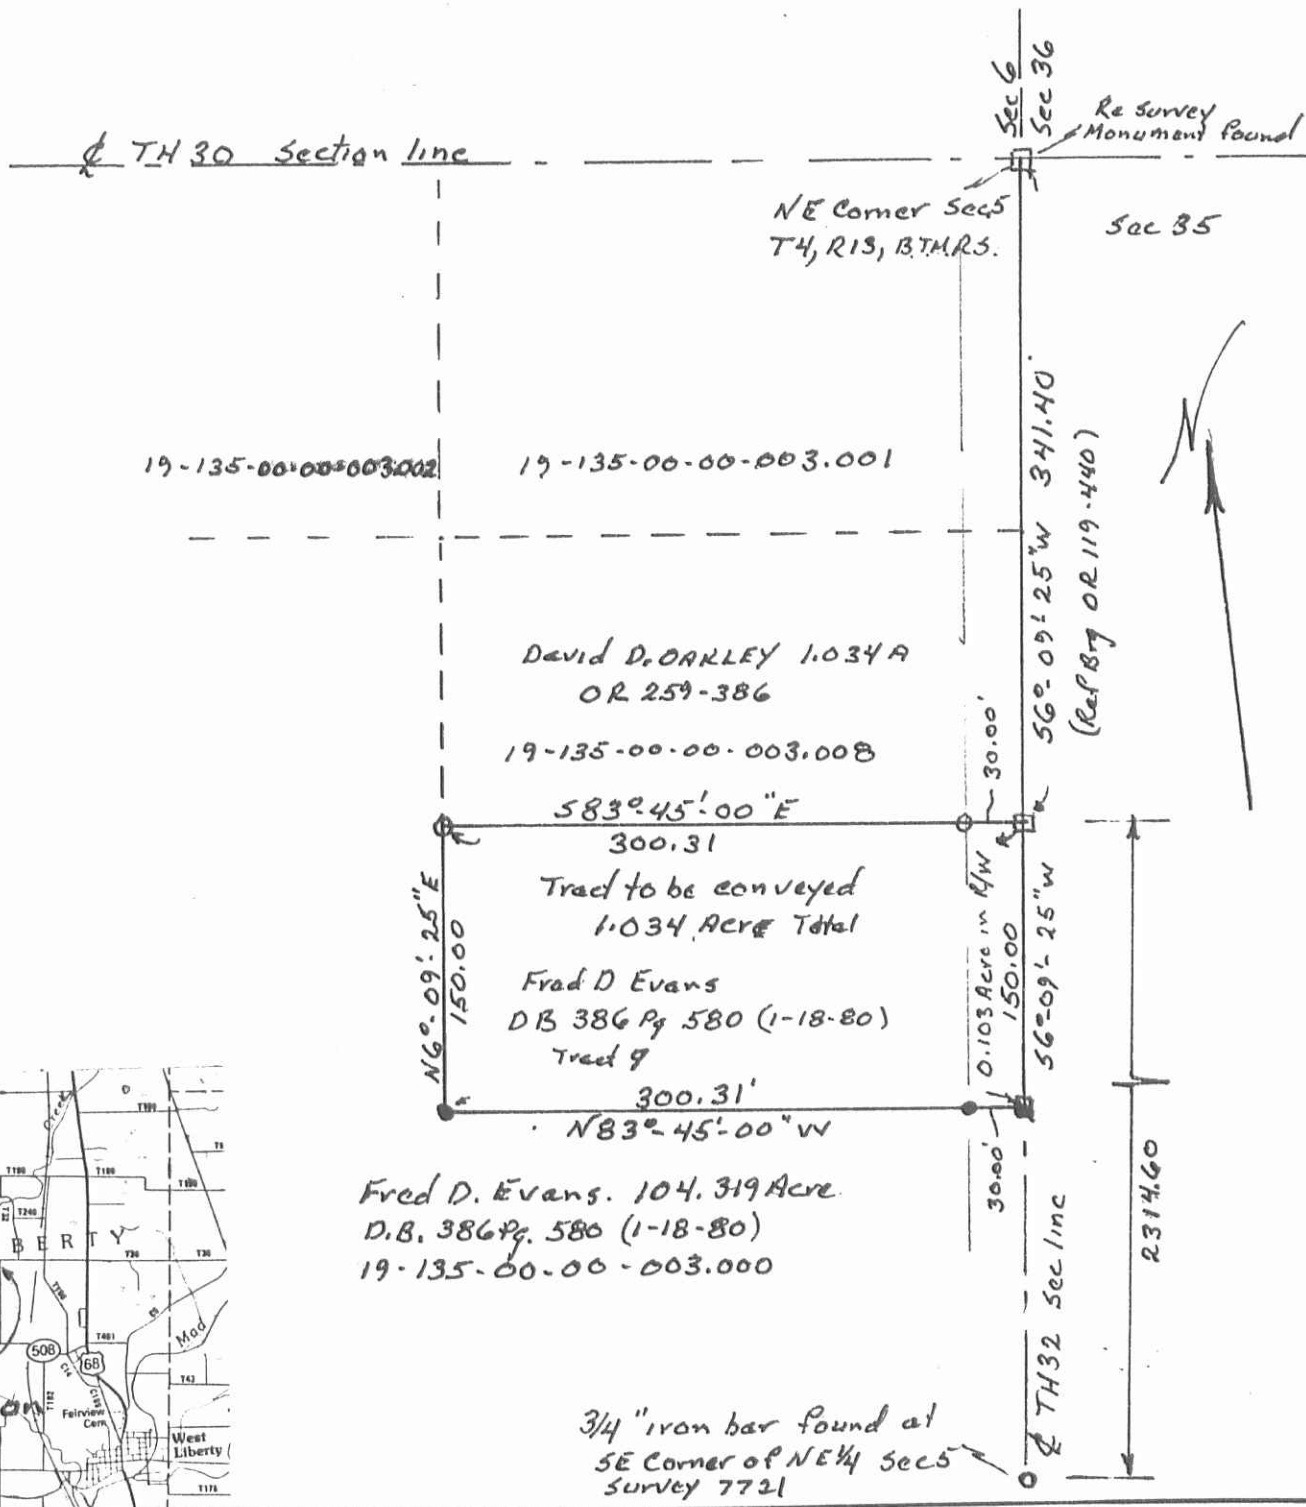 Sec 6
Sec 36
Re Survey
Monument found
℄ TH 30 Section line
NE Corner Sec5
T4, R13, B.T.M.R.S.
Sec 35
N
19-135-00-00-003.002
19-135-00-00-003.001
S6°-09'-25"W 341.40'
(Ref Brg OR 119-440)
David D. OAKLEY 1.034 A
OR 259-386
19-135-00-00-003.008
30.00'
S83°-45'-00"E
300.31
Tract to be conveyed
1.034 Acre Total
N6°-09'-25"E
150.00
Fred D Evans
DB 386 Pg 580 (1-18-80)
Tract 9
0.103 Acre in R/W
150.00
S6°-09'-25"W
300.31'
N83°-45'-00"W
30.00'
Fred D. Evans. 104.319 Acre
D.B. 386 Pg. 580 (1-18-80)
19-135-00-00-003.000
2314.60
℄ TH32 Sec line
3/4" iron bar found at
SE Corner of NE 1/4 Sec5
Survey 7721
Creek
T190
T190
T240
BERTY
T30
T30
Mad
508
68
T43
T182
Fairview
Cem
West
Liberty